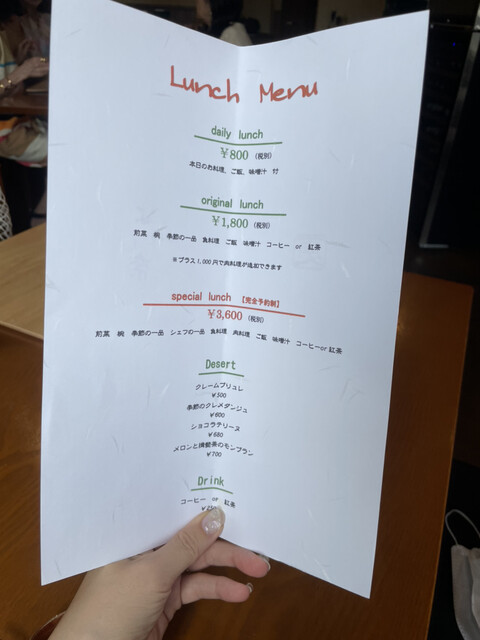 Lunch Menu
daily lunch
￥800 (税別)
本日のお料理、ご飯、味噌汁 付
original lunch
￥1,800 (税別)
煎菓 椀 季節の一品 魚料理 ご飯 味噌汁 コーヒー or 紅茶
※プラス1,000円で肉料理が追加できます
special lunch 【完全予約制】
￥3,600 (税別)
煎菓 椀 季節の一品 シェフの一品 魚料理 肉料理 ご飯 味噌汁 コーヒーor紅茶
Desert
クレームブリュレ
￥500
季節のクレメダンジュ
￥600
ショコラテリーヌ
￥680
メロンと焙煎茶のモンブラン
￥700
Drink
コーヒー or 紅茶